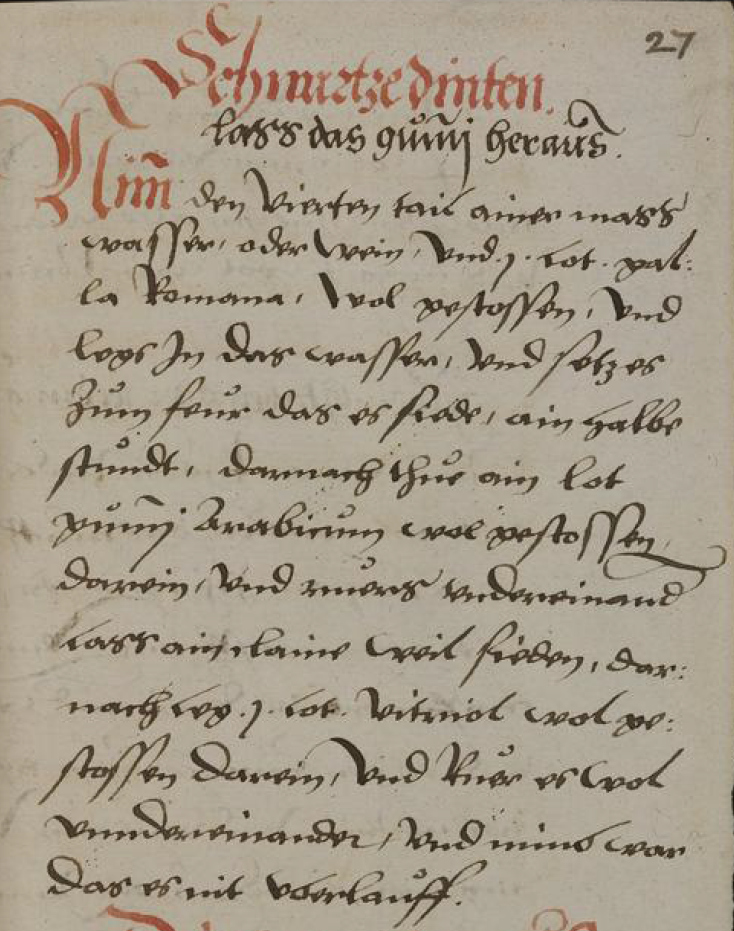 27
Schwartze dinten.
lass das gummj heraus.
Nim̄ den Vierten tail ainer mass
wasser, oder Wein, Vnd .j. Lot. gal:
la Romana, Wol gestossen, Vnd
legs In das wasser, Vnd setz es
Zům feůr das es siede, ain halbe
stůndt, darnach thůe ain lot
gum̄j Arabicum wol gestossen
darein, Vnd rüers vndereinand
Lass ain claine Weil sieden, dar:
nach leg .j. Lot. Vitriol wol ge:
stossen darein, Vnd Rüer es Wol
vnndereinander, Vnd nimb war
das es nit vberlauff.